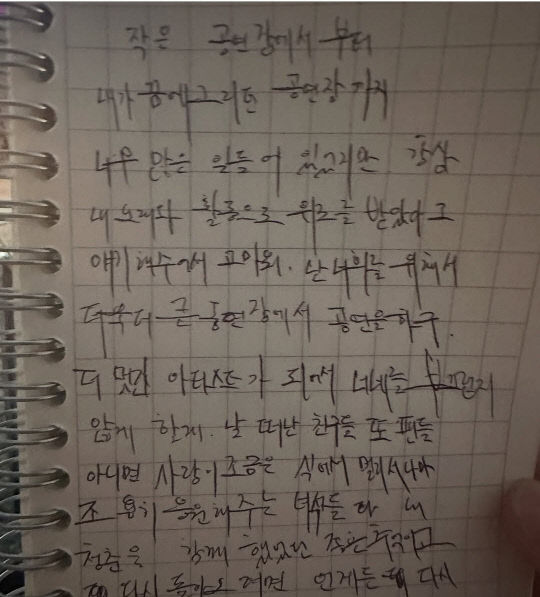 작은 공연장에서 부터
내가 꿈에그리던 공연장 까지
너무 많은 일들이 있었지만 항상
내 노래와 활동으로 위로를 받았다고
얘기해줘서 고마워. 난 너희를 위해서
더욱더 큰 공연장에서 공연을 하구.
더 멋진 아티스트가 되어서 너네들 부끄럽지
않게 할게. 날 떠난 친구들 또 팬들
아니면 사랑이 조금은 식어서 멀리서나마
조용히 응원해주는 녀석들 다 내
청춘을 함께 했었던 좋은 추억이고
다시 돌아오려면 언제든 다시